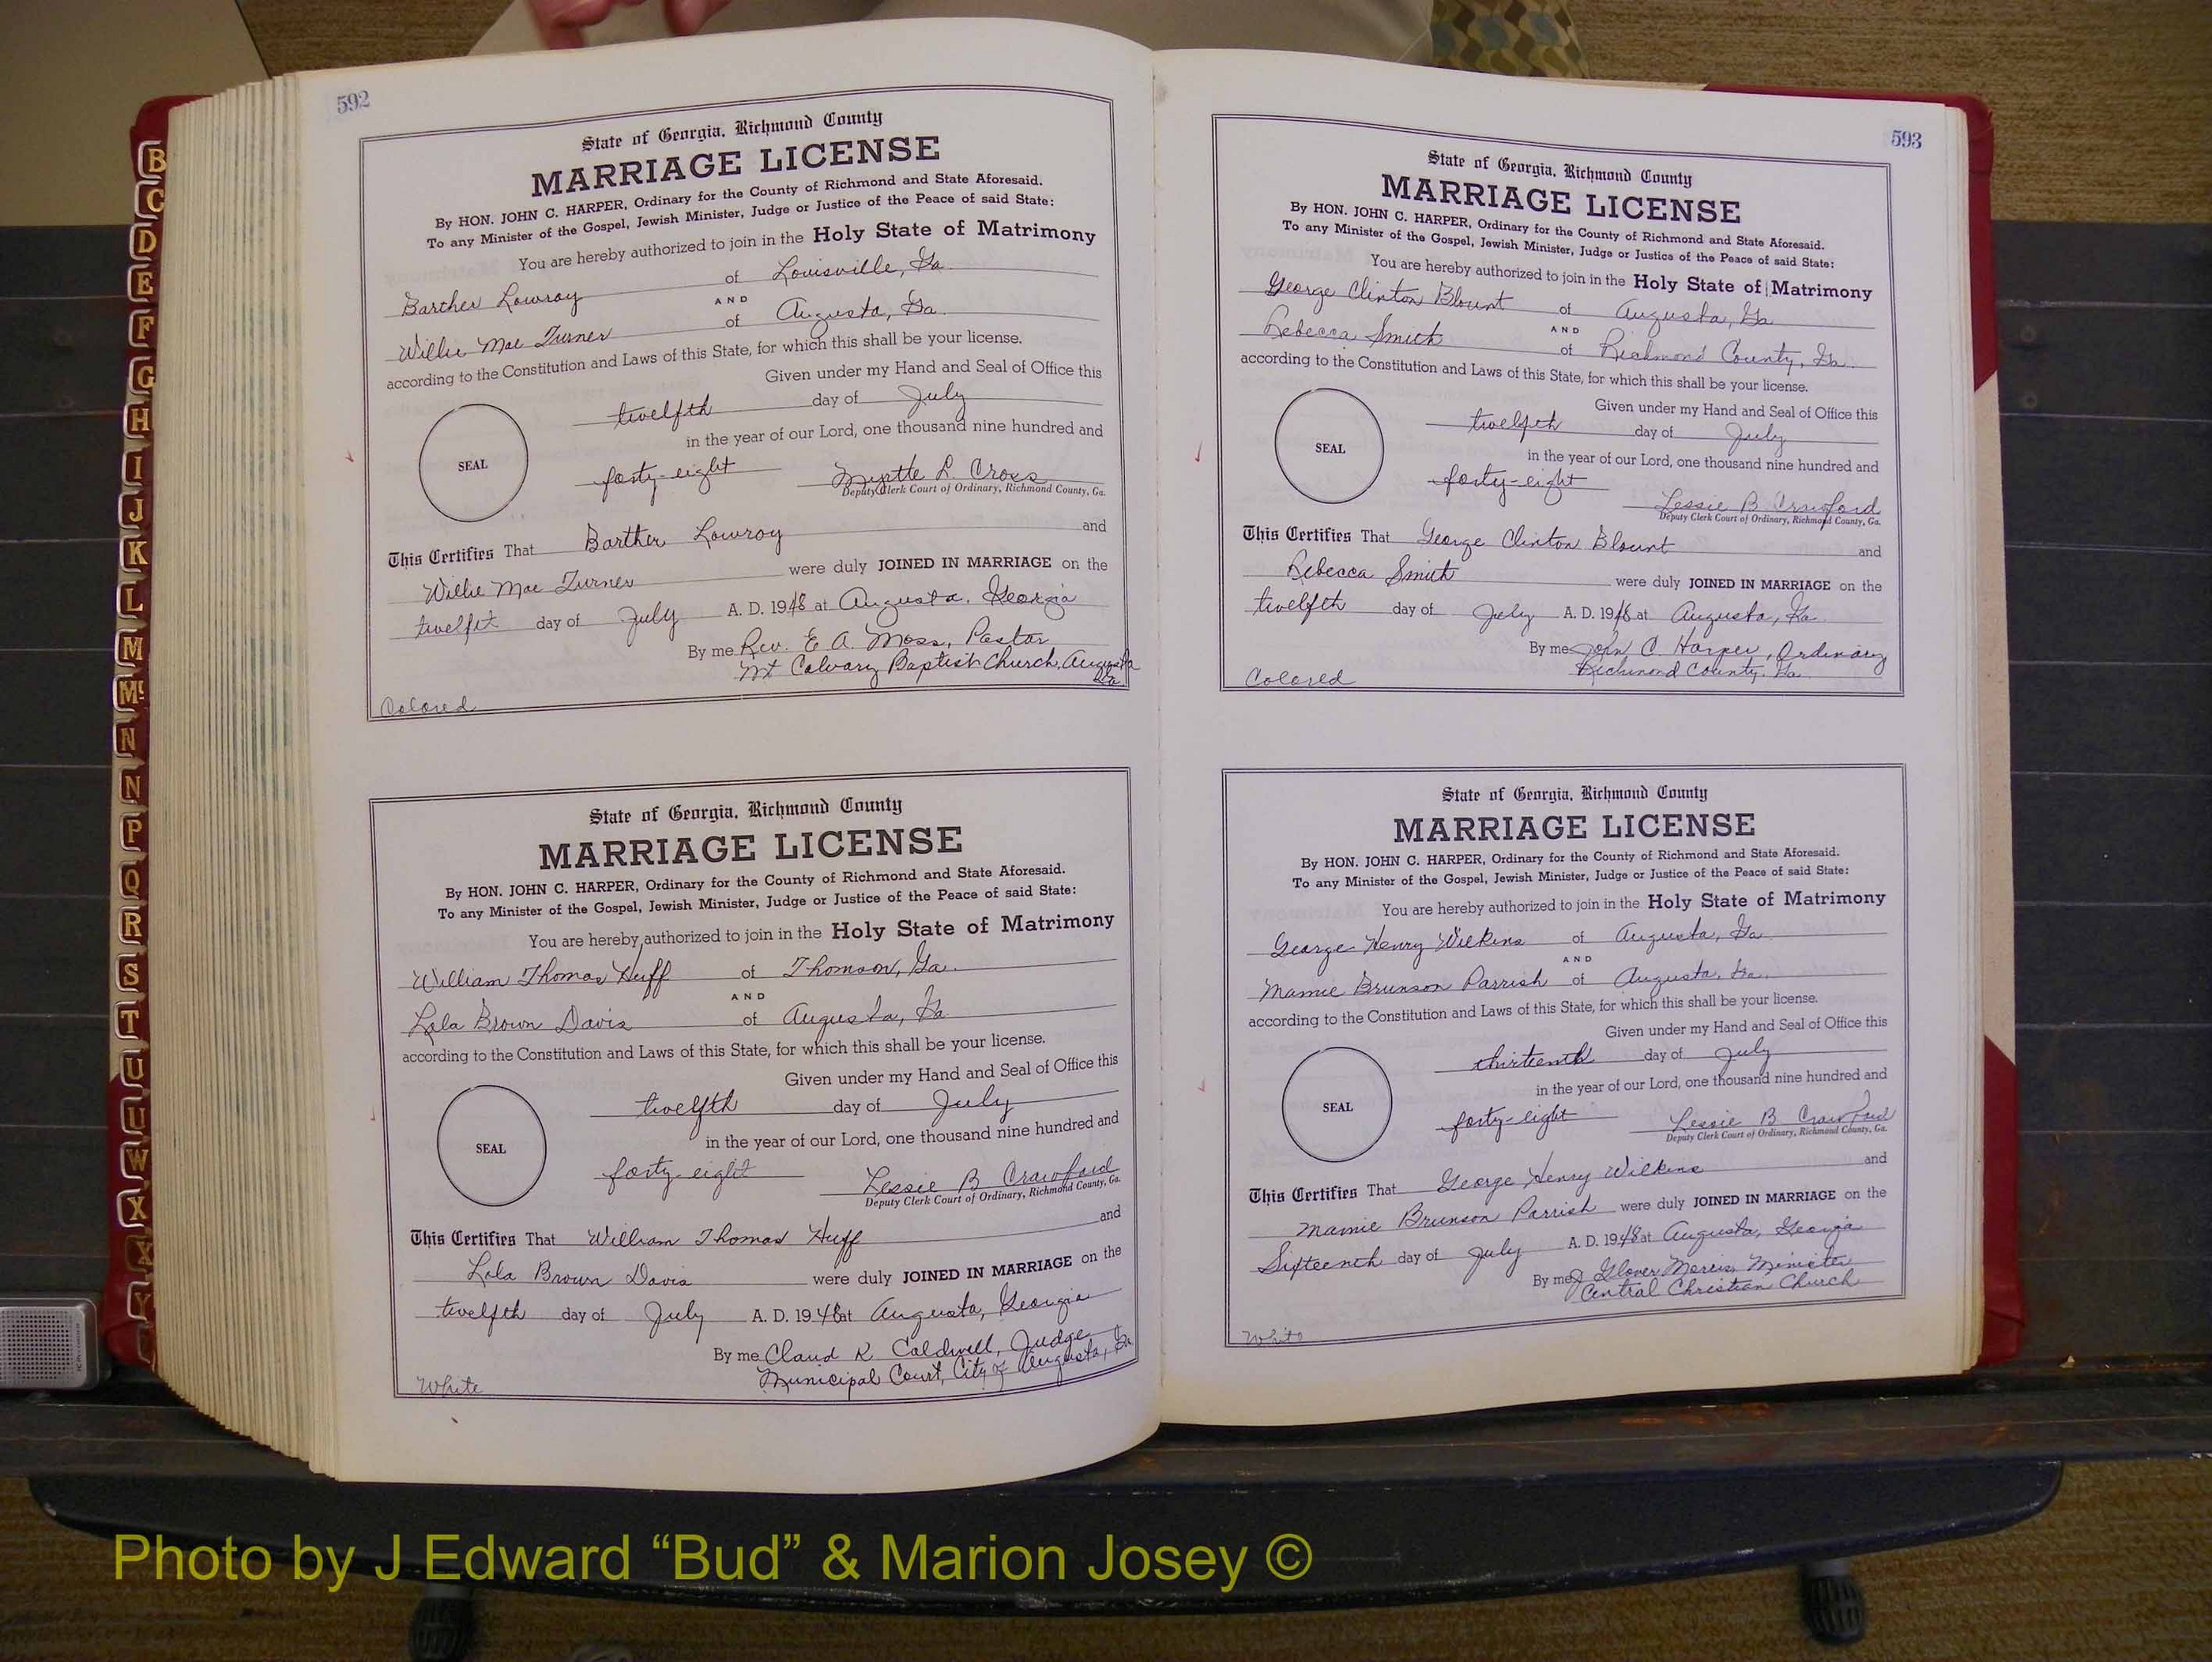 592
State of Georgia, Richmond County
MARRIAGE LICENSE
By HON. JOHN C. HARPER, Ordinary for the County of Richmond and State Aforesaid.
To any Minister of the Gospel, Jewish Minister, Judge or Justice of the Peace of said State:
You are hereby authorized to join in the Holy State of Matrimony
Barther Lowroy of Louisville, Ga.
AND
Willie Mae Turner of Augusta, Ga.
according to the Constitution and Laws of this State, for which this shall be your license.
Given under my Hand and Seal of Office this
twelfth day of July
in the year of our Lord, one thousand nine hundred and
SEAL
forty-eight Myrtle L. Cross
Deputy Clerk Court of Ordinary, Richmond County, Ga.
This Certifies That Barther Lowroy and
Willie Mae Turner were duly JOINED IN MARRIAGE on the
twelfth day of July A. D. 1948 at Augusta, Georgia
By me Rev. E. A. Moss, Pastor
Mt Calvary Baptist Church, Augusta
Ga
Colored
State of Georgia, Richmond County
MARRIAGE LICENSE
By HON. JOHN C. HARPER, Ordinary for the County of Richmond and State Aforesaid.
To any Minister of the Gospel, Jewish Minister, Judge or Justice of the Peace of said State:
You are hereby authorized to join in the Holy State of Matrimony
William Thomas Huff of Thomson, Ga.
AND
Lola Brown Davis of Augusta, Ga
according to the Constitution and Laws of this State, for which this shall be your license.
Given under my Hand and Seal of Office this
twelfth day of July
in the year of our Lord, one thousand nine hundred and
SEAL
forty-eight Lessie B Crawford
Deputy Clerk Court of Ordinary, Richmond County, Ga.
This Certifies That William Thomas Huff and
Lola Brown Davis were duly JOINED IN MARRIAGE on the
twelfth day of July A. D. 1948 at Augusta, Georgia
By me Claud R. Caldwell, Judge
Municipal Court, City of Augusta, Ga
White
593
State of Georgia, Richmond County
MARRIAGE LICENSE
By HON. JOHN C. HARPER, Ordinary for the County of Richmond and State Aforesaid.
To any Minister of the Gospel, Jewish Minister, Judge or Justice of the Peace of said State:
You are hereby authorized to join in the Holy State of Matrimony
George Clinton Blount of Augusta, Ga
AND
Rebecca Smith of Richmond County, Ga.
according to the Constitution and Laws of this State, for which this shall be your license.
Given under my Hand and Seal of Office this
twelfth day of July
in the year of our Lord, one thousand nine hundred and
SEAL
forty-eight Lessie B Crawford
Deputy Clerk Court of Ordinary, Richmond County, Ga.
This Certifies That George Clinton Blount and
Rebecca Smith were duly JOINED IN MARRIAGE on the
twelfth day of July A. D. 1948 at Augusta, Ga
By me John C Harper, Ordinary
Richmond County, Ga.
Colored
State of Georgia, Richmond County
MARRIAGE LICENSE
By HON. JOHN C. HARPER, Ordinary for the County of Richmond and State Aforesaid.
To any Minister of the Gospel, Jewish Minister, Judge or Justice of the Peace of said State:
You are hereby authorized to join in the Holy State of Matrimony
George Henry Wilkins of Augusta, Ga
AND
Mamie Brunson Parrish of Augusta, Ga.
according to the Constitution and Laws of this State, for which this shall be your license.
Given under my Hand and Seal of Office this
thirteenth day of July
in the year of our Lord, one thousand nine hundred and
SEAL
forty-eight Lessie B Crawford
Deputy Clerk Court of Ordinary, Richmond County, Ga.
This Certifies That George Henry Wilkins and
Mamie Brunson Parrish were duly JOINED IN MARRIAGE on the
Sixteenth day of July A. D. 1948 at Augusta, Georgia
By me J Glover Minister
Central Christian Church
White
B
C
D
E
F
G
H
I
J
K
L
M
Mc
N
N
P
Q
R
S
T
U
U
W
X
X
Y
Photo by J Edward “Bud” & Marion Josey ©